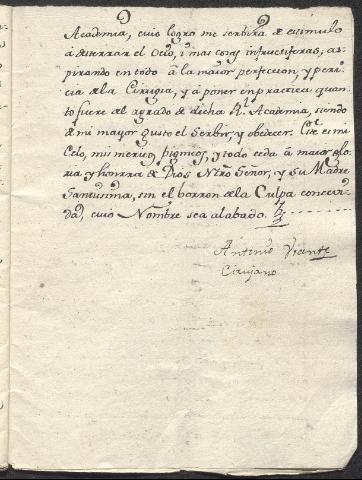 Academia, cuio logro me serbirá de estimulo
á desterrar el Ocio, i mas cosas infructiferas, as-
pirando en todo â la maior perfeccion, y peri-
cia de la Cirugia, y á poner en practica quan-
to fuere del agrado de dicha Rl. Academia, siendo
de mi mayor gusto el Serbir, y obedecer. Este es mi
Celo, mis meritos, y todo ceda â maior glo-
ria y honrra de Dios Ntro Señor, y su Madre
Santissima, sin el borron de la Culpa conceve-
da, cuio Nombre sea alabado.
Antonio Vicente
Cirujano